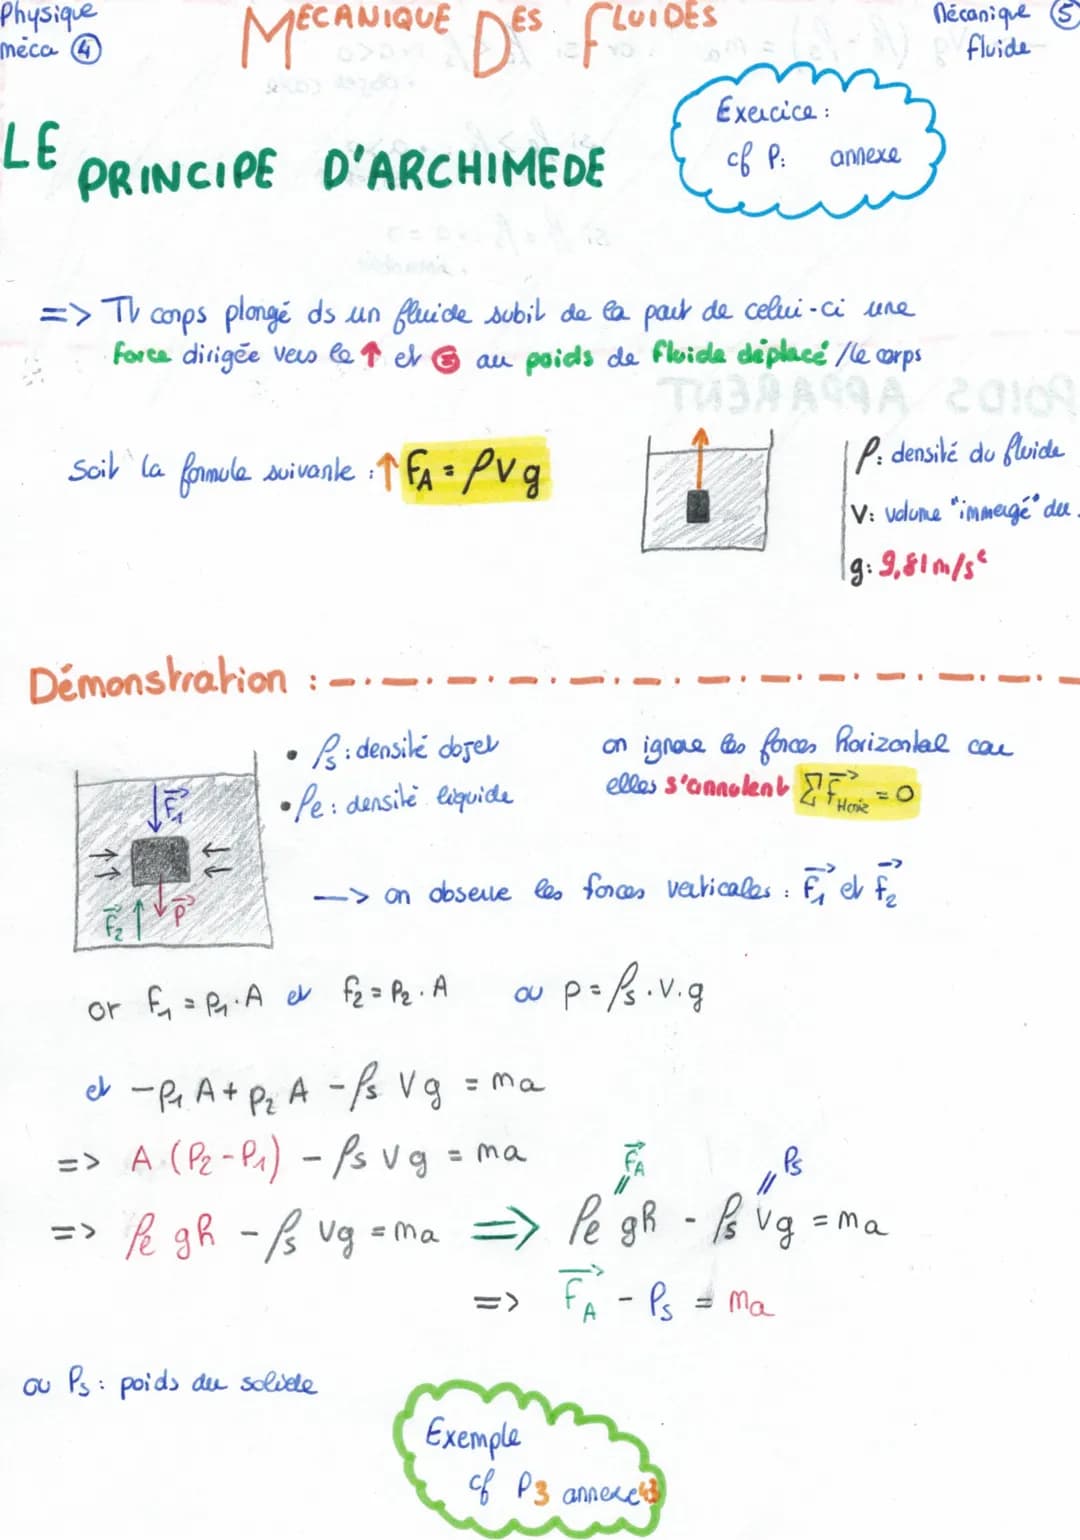 Physique
méca ④
MECANIQUE DES FLUIDES
Mécanique ⑤
fluide
Exercice :
cf P: annexe
LE PRINCIPE D'ARCHIMEDE
=> Tt corps plongé ds un fluide subit de la part de celui-ci une
force dirigée vers le ↑ et = au poids de fluide déplacé /le corps
Soit la formule suivante : ↑ FA = ρVg
ρ: densité du fluide
V: volume "immergé" du
g: 9,81 m/s²
Démonstration :
• ρs : densité objet
• ρe : densité liquide
on ignore les forces horizontal car
elles s'annulent Σ F Horiz = 0
F1
F2
P
—> on observe les forces verticales : F1 et F2
or F1 = P1 . A et F2 = P2 . A ou p = ρs . V . g
et -P1 A + P2 A - ρs Vg = ma
=> A . (P2 - P1) - ρs Vg = ma
FA
Ps
=> ρe gh - ρs Vg = ma => ρe gh - ρs Vg = ma
=> FA - Ps = ma
ou Ps : poids du solide
Exemple
cf P3 annexe